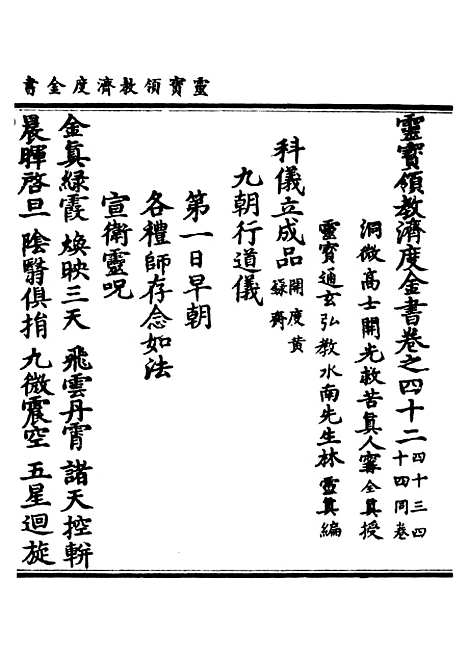 靈寶領教濟度金書
靈寶領教濟度金書卷之四十二四十三四十四同卷
洞微高士開光救苦真人甯全真授
靈寶通玄弘教水南先生林靈真編
科儀立成品開度黃籙齋
九朝行道儀
第一日早朝
各禮師存念如法
宣衛靈呪
金真緑霞 煥映三天 飛雲丹霄 諸天控軿
晨暉啓旦 陰翳俱捐 九微震空 五星迴旋